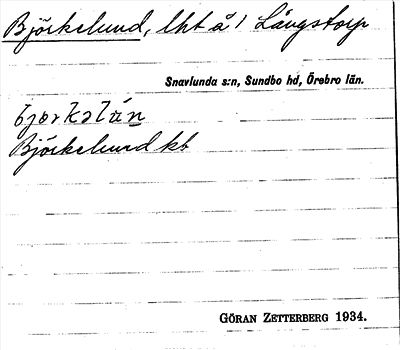 Björkelund, lht å 1 Långstorp
Snavlunda s:n, Sundbo hd, Örebro län.
Björkelund kb
GÖRAN ZETTERBERG 1934.